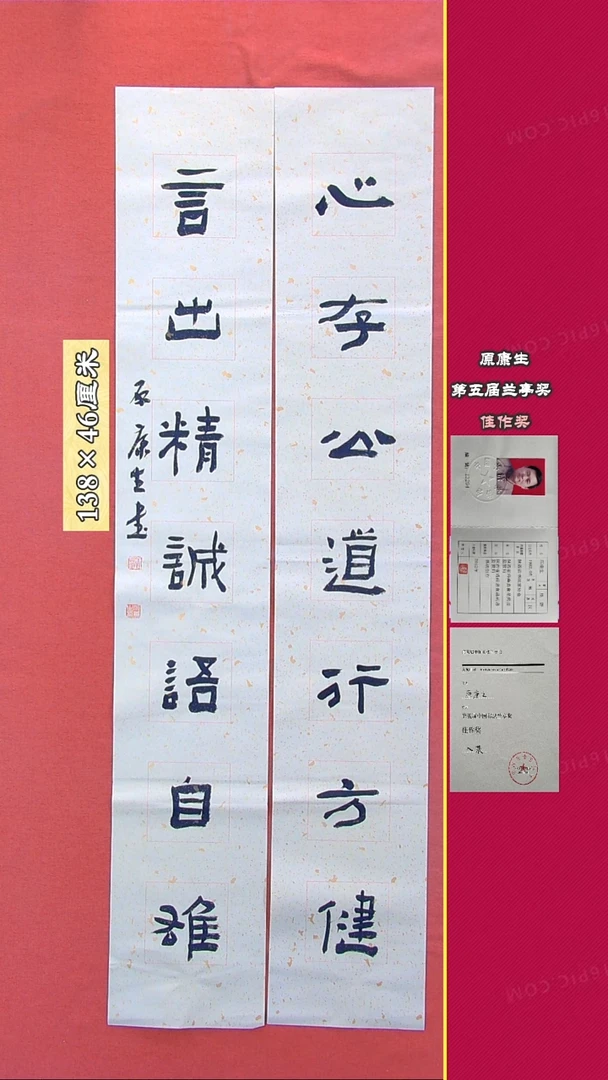 心存公道行方健
言出精誠語自雄
原康生書
138×46厘米
原康生
第五届兰亭奖
佳作奖
佳作奖
入展